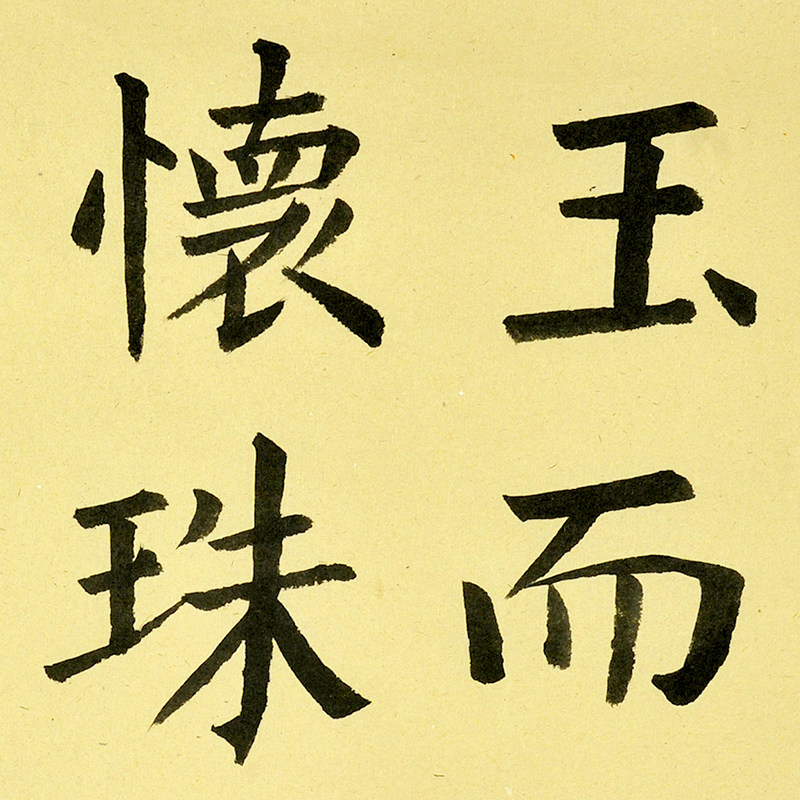 玉而
懷珠